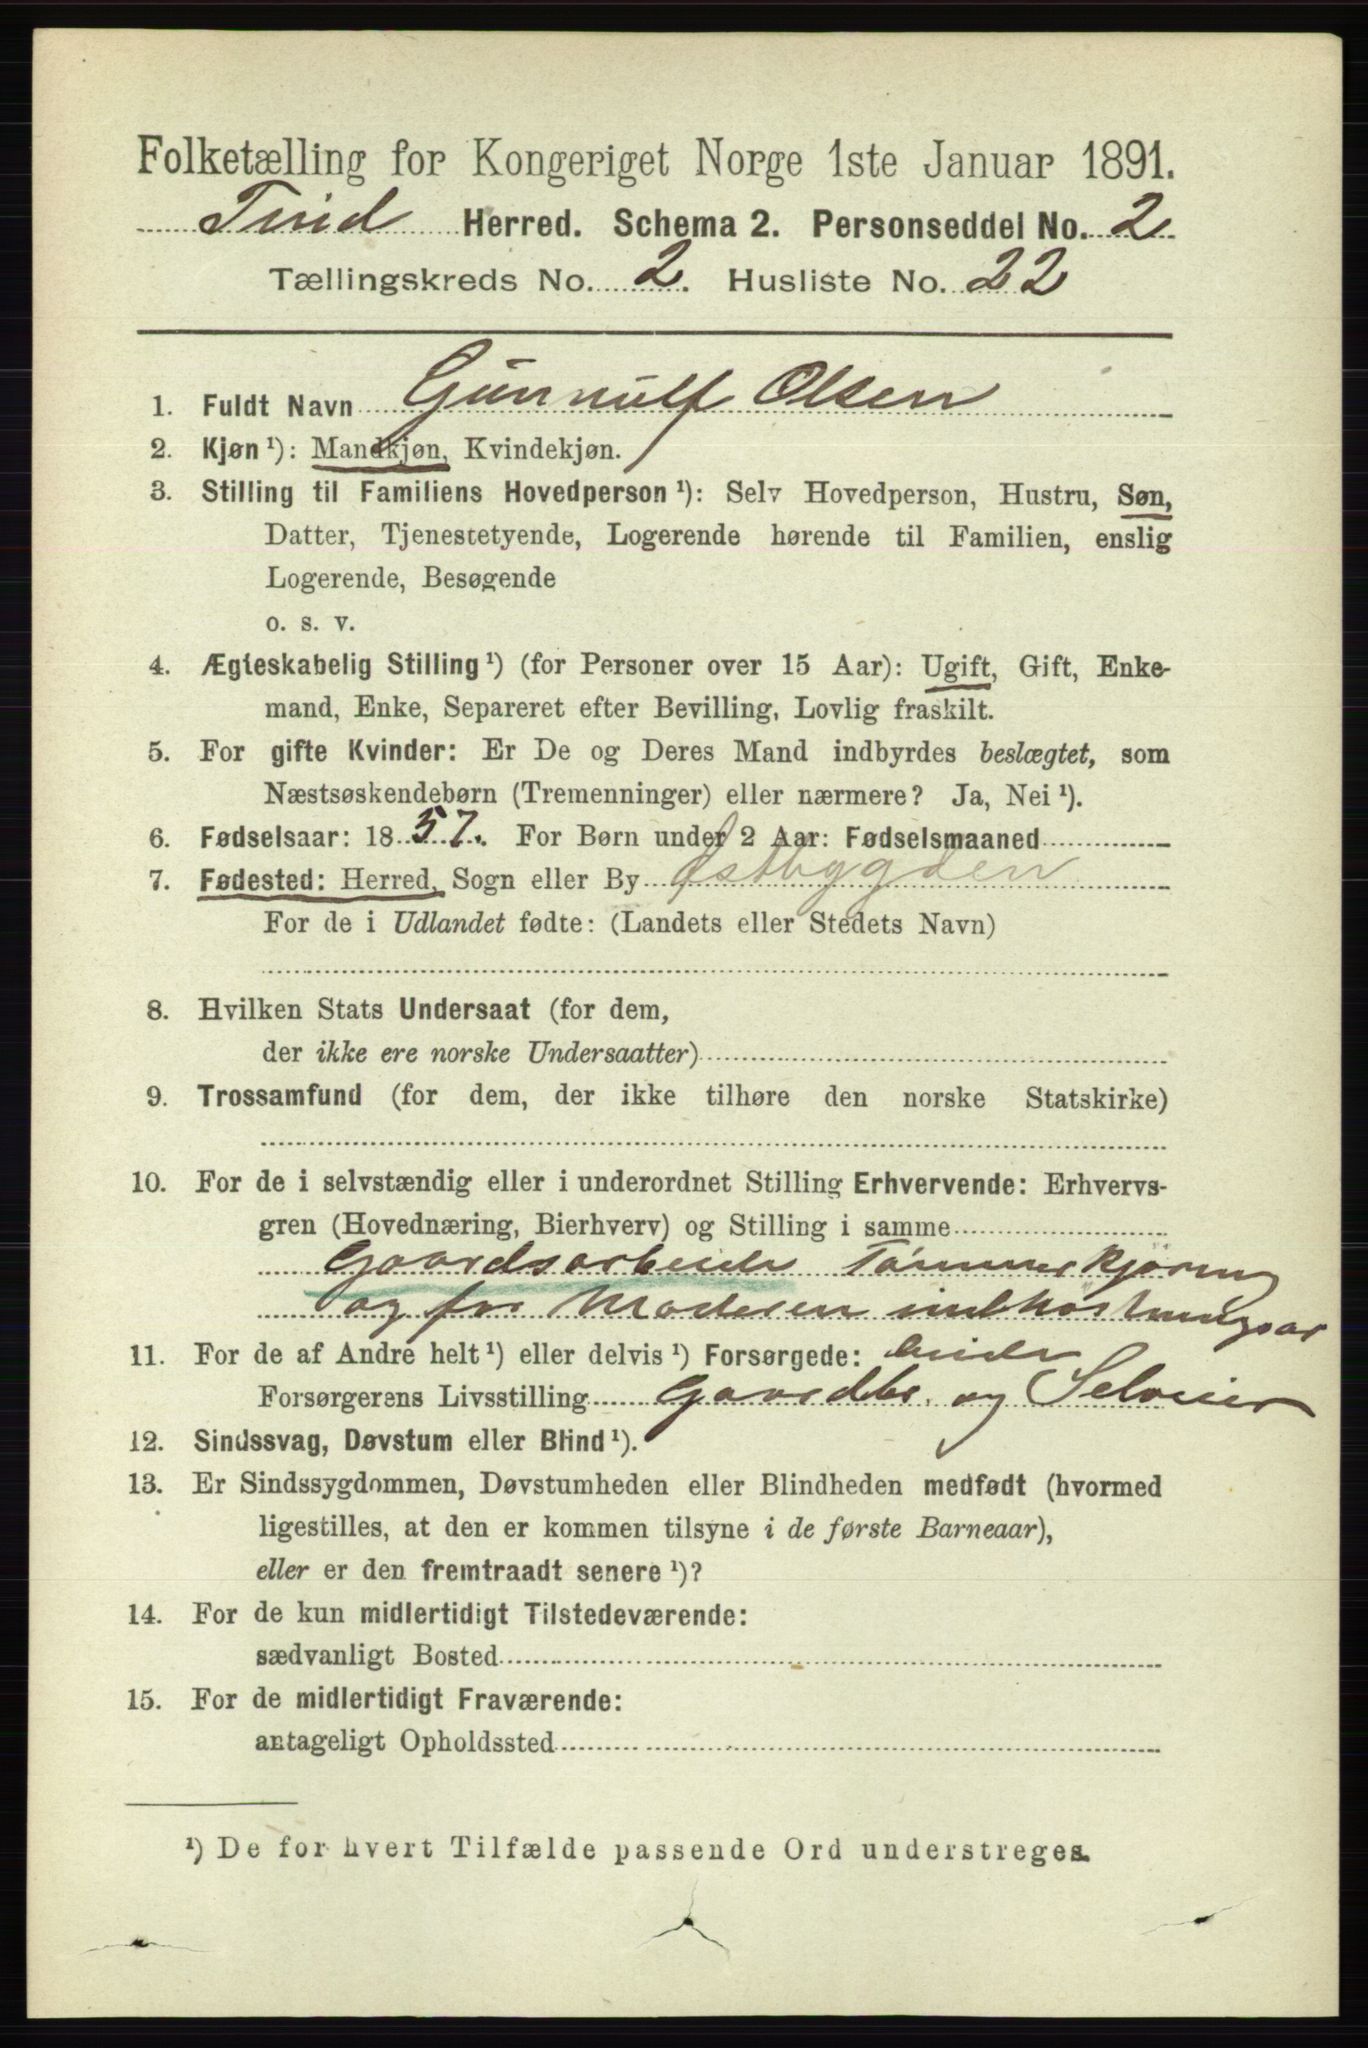 Folketælling for Kongeriget Norge 1ste Januar 1891.
Tind Herred. Schema 2. Personseddel No. 2
Tællingskreds No. 2. Husliste No. 22
1. Fuldt Navn Gunnulf Olsen
2. Kjøn ¹): Mandkjøn, Kvindekjøn.
3. Stilling til Familiens Hovedperson ¹): Selv Hovedperson, Hustru, Søn,
Datter, Tjenestetyende, Logerende hørende til Familien, enslig
Logerende, Besøgende
o. s. v.
4. Ægteskabelig Stilling ¹) (for Personer over 15 Aar): Ugift, Gift, Enke-
mand, Enke, Separeret efter Bevilling, Lovlig fraskilt.
5. For gifte Kvinder: Er De og Deres Mand indbyrdes beslægtet, som
Næstsøskendebørn (Tremenninger) eller nærmere? Ja, Nei ¹).
6. Fødselsaar: 1857. For Børn under 2 Aar: Fødselsmaaned
7. Fødested: Herred, Sogn eller By Østbygden
For de i Udlandet fødte: (Landets eller Stedets Navn)
8. Hvilken Stats Undersaat (for dem,
der ikke ere norske Undersaatter)
9. Trossamfund (for dem, der ikke tilhøre den norske Statskirke)
10. For de i selvstændig eller i underordnet Stilling Erhvervende: Erhvervs-
gren (Hovednæring, Bierhverv) og Stilling i samme
Gaardsarbeide Tømmerkjøring
og for Moderen indhøstningsar
11. For de af Andre helt ¹) eller delvis ¹) Forsørgede: beide
Forsørgerens Livsstilling Gaardbr. og Selveier
12. Sindssvag, Døvstum eller Blind ¹).
13. Er Sindssygdommen, Døvstumheden eller Blindheden medfødt (hvormed
ligestilles, at den er kommen tilsyne i de første Barneaar),
eller er den fremtraadt senere ¹)?
14. For de kun midlertidigt Tilstedeværende:
sædvanligt Bosted
15. For de midlertidigt Fraværende:
antageligt Opholdssted
¹) De for hvert Tilfælde passende Ord understreges.